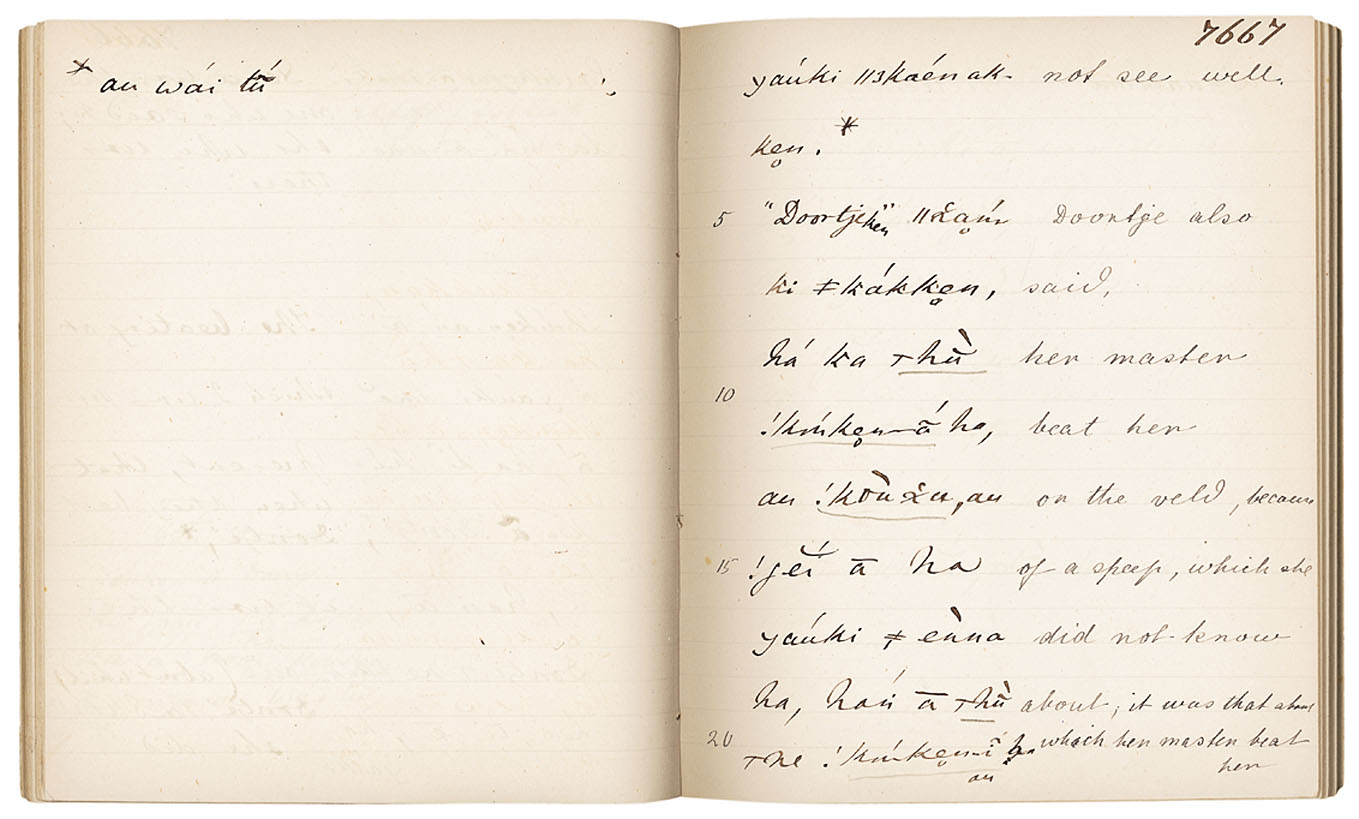 * au wái tú̄
7667
yaúki ||ȝkaénak- not see well.
ken̥. *
5 "Doortje"ken || Doortje also
ki ≠kákken̥, said,
há ka hù̄ her master
10
!kúken̥-ā́ ha, beat her
au au on the veld, because
15 ā ha of a sheep, which she
yaúki ≠ènna did not know
ha, haú ā hù̄ about; it was that about
20 he !kúken̥-ī au ha which her master beat
her